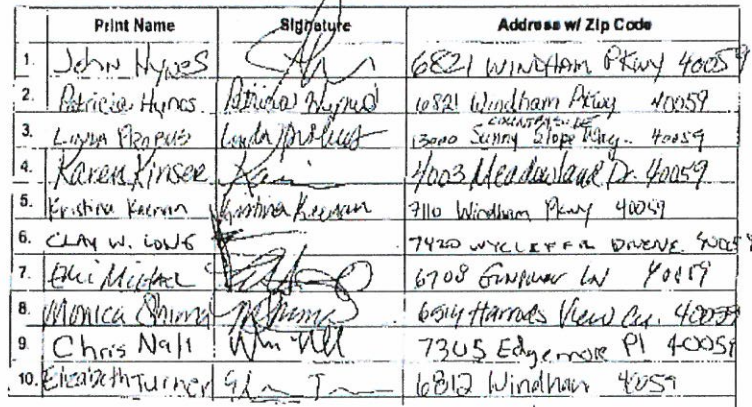 Print Name Signature Address w/ Zip Code
1. John Hynes 6821 WINDHAM PKWY 40059
2. Patricia Hynes Patricia Hynes 6821 Windham Pkwy 40059
COUNTRYSIDE
3. LINDA Linda 13000 Sunny Slope 40059
4. Karen Kinser 4003 Meadowland Dr. 40059
5. Kristina Keenan Kristina Keenan 7110 Windham Pkwy 40059
6. CLAY W. LONG 7420 40059
7. 6708 LN 40059
8. Monica 6514 Harrods View 40059
9. Chris Nall 7305 Edgemore Pl 40059
10. Elizabeth Turner 6812 Windham 40059